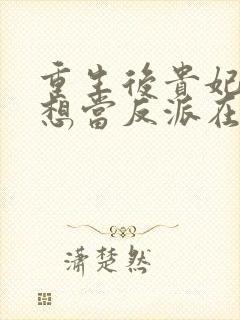 重生後貴妃
想當反派在
瀟楚然